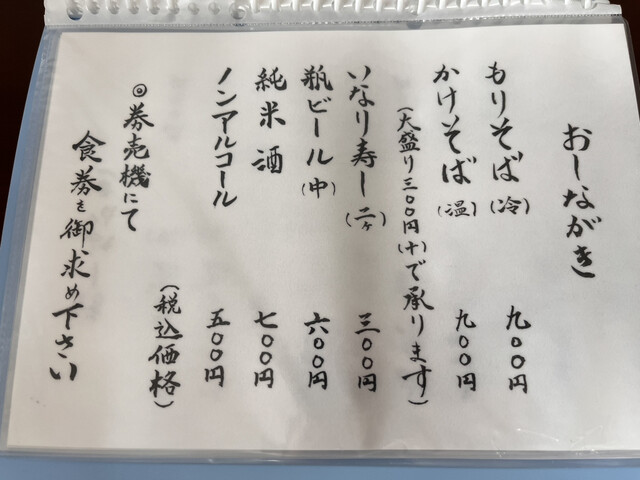 おしながき
もりそば(冷) 九〇〇円
かけそば(温) 九〇〇円
(大盛り三〇〇円(+)で承ります)
いなり寿し(二ヶ) 三〇〇円
瓶ビール(中) 六〇〇円
純米酒 七〇〇円
ノンアルコール 五〇〇円
(税込価格)
◎券売機にて
食券を御求め下さい